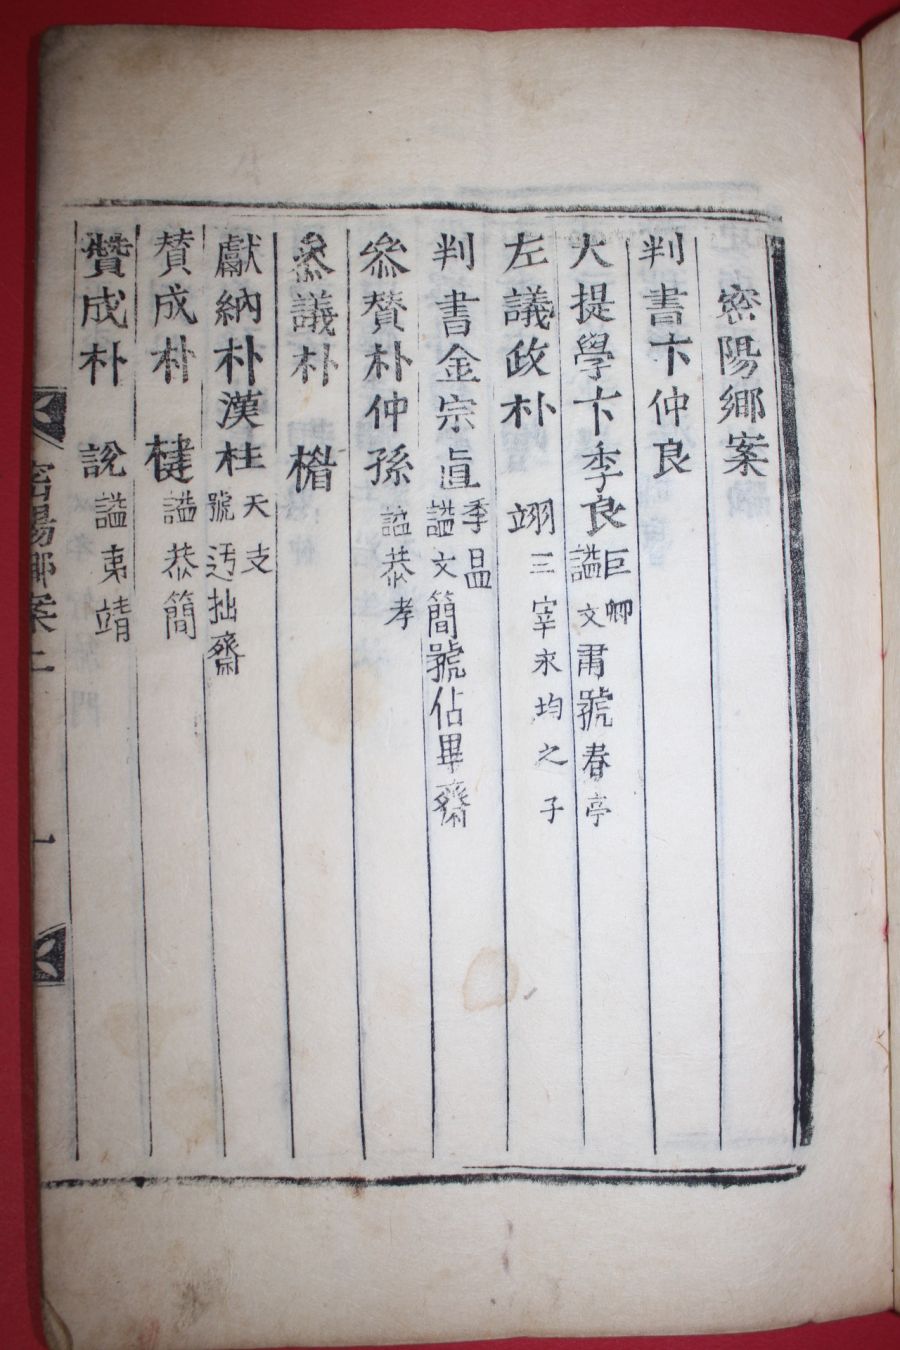 密陽鄉案
判書卞仲良
大提學卞季良 巨卿 謚文肅號春亭
左議政朴 翊 三宰永均之子
判書金宗直 季昷 謚文簡號佔畢齋
叅贊朴仲孫 謚恭孝
叅議朴 楣
獻納朴漢柱 天支 號迃拙齋
賛成朴 楗 謚恭簡
贊成朴 說 謚夷靖
密陽鄉案上 一